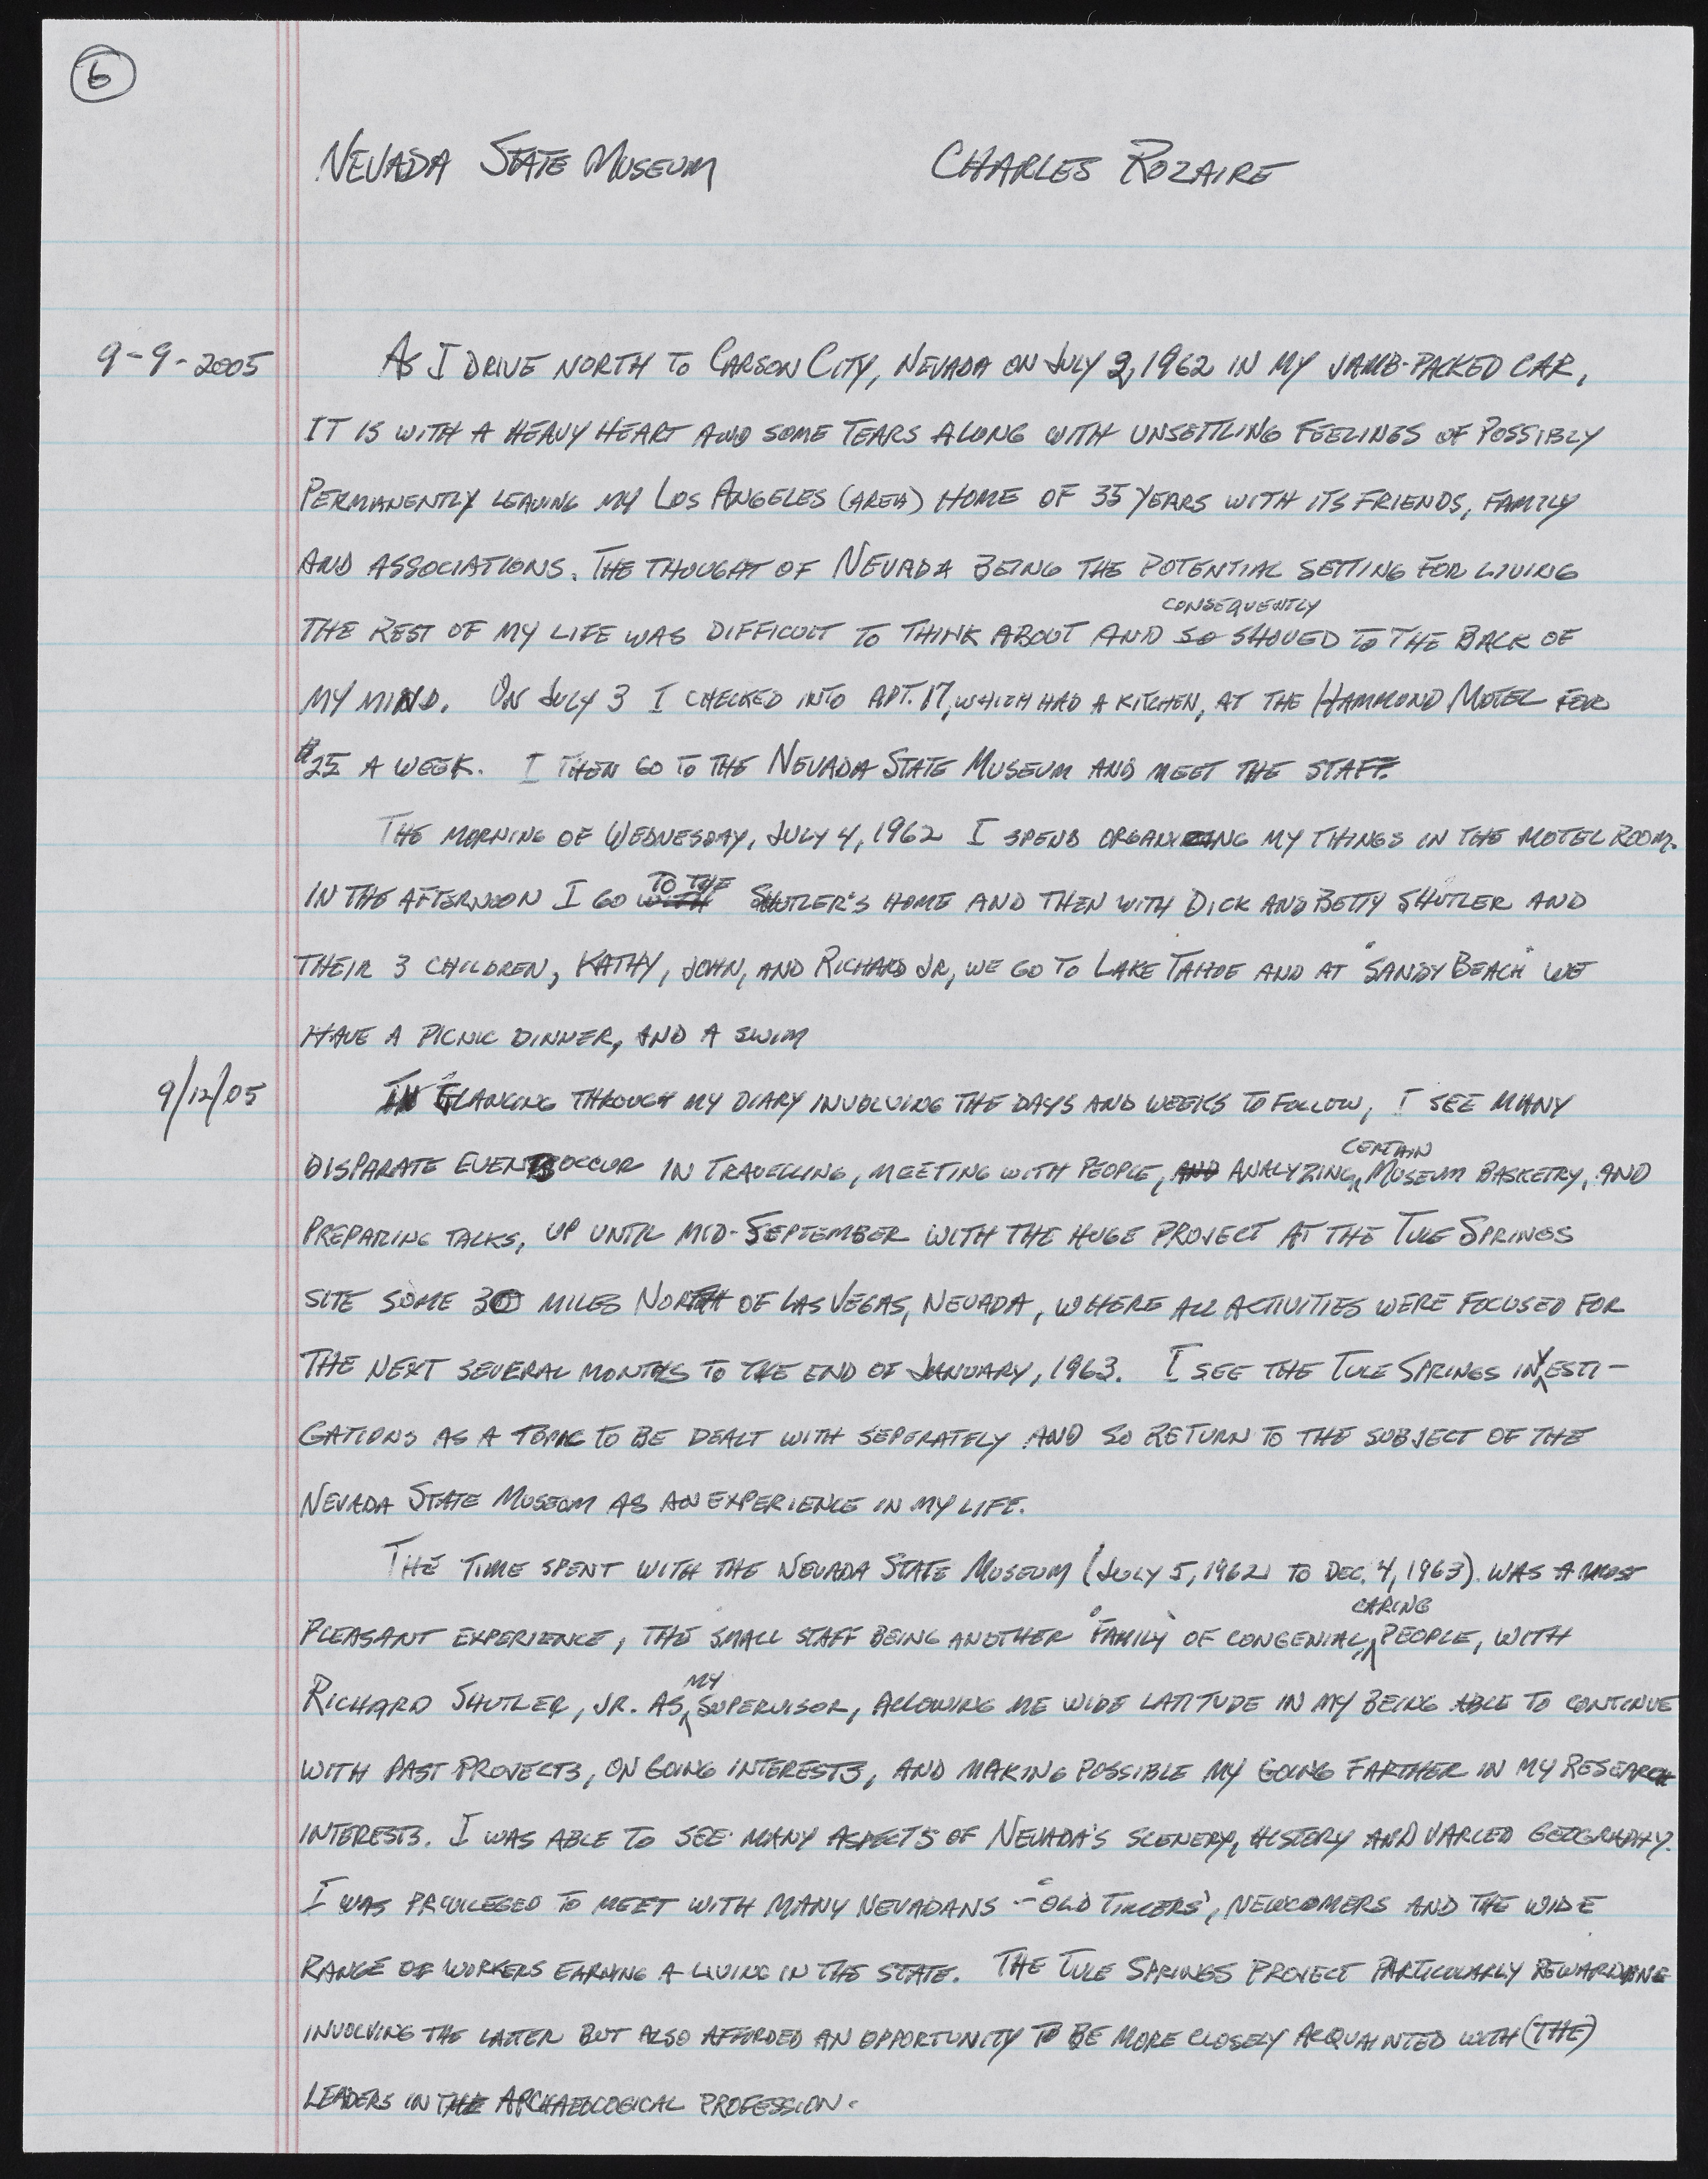 6
NEVADA STATE MUSEUM CHARLES ROZAIRE
9-9-2005 AS I DRIVE NORTH TO CARSON CITY, NEVADA ON JULY 2, 1962 IN MY JAMB-PACKED CAR,
IT IS WITH A HEAVY HEART AND SOME TEARS ALONG WITH UNSETTLING FEELINGS OF POSSIBLY
PERMANENTLY LEAVING MY LOS ANGELES (AREA) HOME OF 35 YEARS WITH ITS FRIENDS, FAMILY
AND ASSOCIATIONS. THE THOUGHT OF NEVADA BEING THE POTENTIAL SETTING FOR LIVING
CONSEQUENTLY
THE REST OF MY LIFE WAS DIFFICULT TO THINK ABOUT AND SO SHOVED TO THE BACK OF
MY MIND. ON JULY 3 I CHECKED INTO APT. 17, WHICH HAD A KITCHEN, AT THE HAMMOND MOTEL FOR
$25 A WEEK. I THEN GO TO THE NEVADA STATE MUSEUM AND MEET THE STAFF.
THE MORNING OF WEDNESDAY, JULY 4, 1962 I SPEND ORGANIZING MY THINGS IN THE MOTEL ROOM.
TO THE
IN THE AFTERNOON I GO WITH SHUTLER'S HOME AND THEN WITH DICK AND BETTY SHUTLER AND
THEIR 3 CHILDREN, KATHY, JOHN, AND RICHARD JR, WE GO TO LAKE TAHOE AND AT "SANDY BEACH" WE
HAVE A PICNIC DINNER, AND A SWIM
9/12/05 IN GLANCING THROUGH MY DIARY INVOLVING THE DAYS AND WEEKS TO FOLLOW, I SEE MANY
CERTAIN
DISPARATE EVENTS OCCUR IN TRAVELLING, MEETING WITH PEOPLE, AND ANALYZING MUSEUM BASKETRY, AND
PREPARING TALKS, UP UNTIL MID-SEPTEMBER WITH THE HUGE PROJECT AT THE TULE SPRINGS
SITE SOME 30 MILES NORTH OF LAS VEGAS, NEVADA, WHERE ALL ACTIVITIES WERE FOCUSED FOR
THE NEXT SEVERAL MONTHS TO THE END OF JANUARY, 1963. I SEE THE TULE SPRINGS INVESTI-
GATIONS AS A TOPIC TO BE DEALT WITH SEPERATELY AND SO RETURN TO THE SUBJECT OF THE
NEVADA STATE MUSEUM AS AN EXPERIENCE IN MY LIFE.
THE TIME SPENT WITH THE NEVADA STATE MUSEUM (JULY 5, 1962 TO DEC. 4, 1963). WAS A MOST
CARING
PLEASANT EXPERIENCE, THE SMALL STAFF BEING ANOTHER "FAMILY" OF CONGENIAL, PEOPLE, WITH
MY
RICHARD SHUTLER, JR. AS SUPERVISOR, ALLOWING ME WIDE LATITUDE IN MY BEING ABLE TO CONTINUE
WITH PAST PROJECTS, ON GOING INTERESTS, AND MAKING POSSIBLE MY GOING FARTHER IN MY RESEARCH
INTERESTS. I WAS ABLE TO SEE MANY ASPECTS OF NEVADA'S SCENERY, HISTORY AND VARIED GEOGRAPHY.
I WAS PRIVILEGED TO MEET WITH MANY NEVADANS - "OLD TIMERS", NEWCOMERS AND THE WIDE
RANGE OF WORKERS EARNING A LIVING IN THE STATE. THE TULE SPRINGS PROJECT PARTICULARLY REWARDING
INVOLVING THE LATTER BUT ALSO AFFORDED AN OPPORTUNITY TO BE MORE CLOSELY ACQUAINTED WITH (THE)
LEADERS IN THE ARCHAEOLOGICAL PROFESSION.